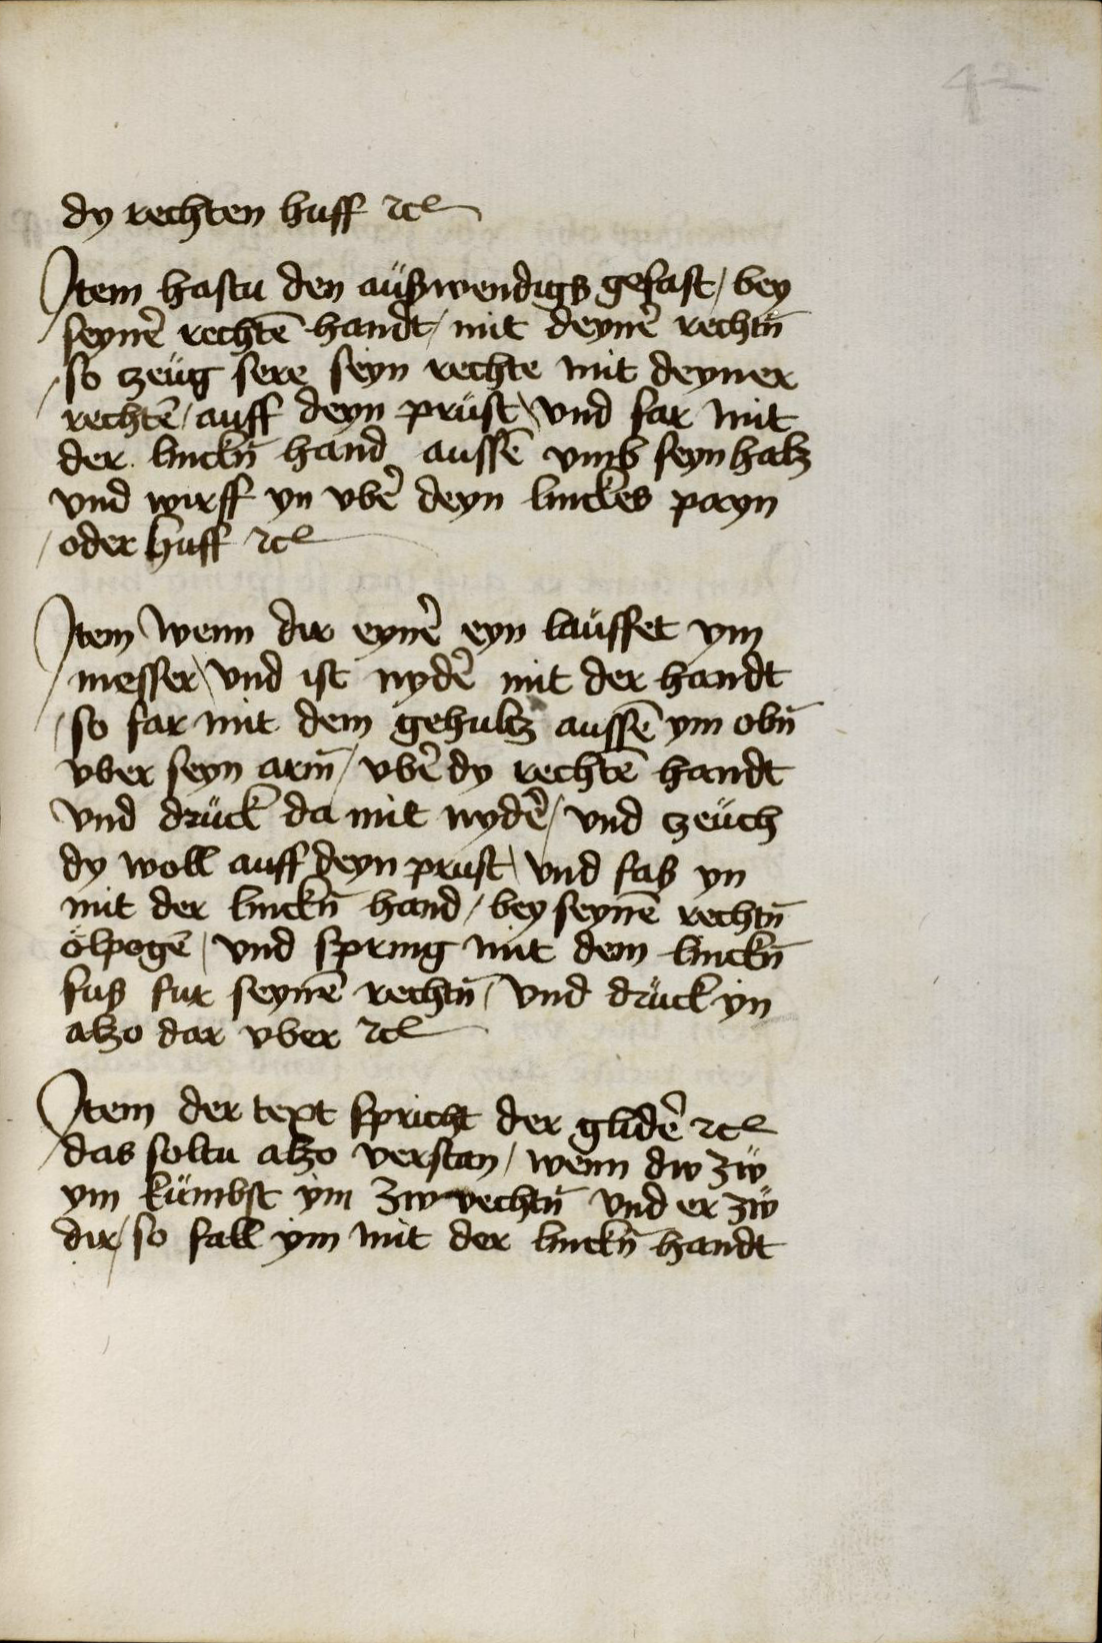 42
dy rechten huff ⁊cꝭ
Item hastu den aüßwendigß gefast / bey
seynē rechtē handt / mit deynē rechtn̄
so zeüg sere seyn rechte mit deyner
rechtē / auff deyn prüst \ vnd far mit
der linckn̄ hand aussē vmb seyn halz
vnd wirff yn vbē deyn linckes payn
oder huff ⁊cꝭ
Item wenn dir eynē eyn laüffet ym
messer \ vnd ist nydē mit der handt
so far mit dem gehultz aussē ym obn̄
vber seyn arm̄ / vbē dy rechtē handt
vnd drück da mit nydē / vnd zeüch
dy woll auff deyn prust \ vnd faß yn
mit der linckn̄ hand / bey seynē rechtn̄
ölpogē / vnd spring mit dem linckn̄
fuß fur seynē rechtn̄ / vnd drück yn
alzo dar vber ⁊cꝭ
Item der text spricht der glidē ⁊cꝭ
das soltu alzo verstan / wenn dw zẅ
ym kümbst ym zw vechtn̄ vnd er zẅ
dir / so fall ym mit der linckn̄ handt